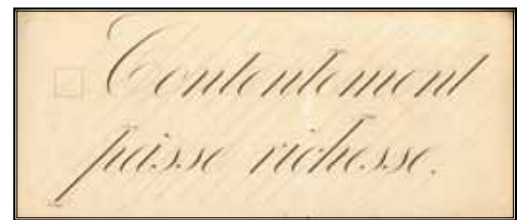 Contentement
passe richesse.